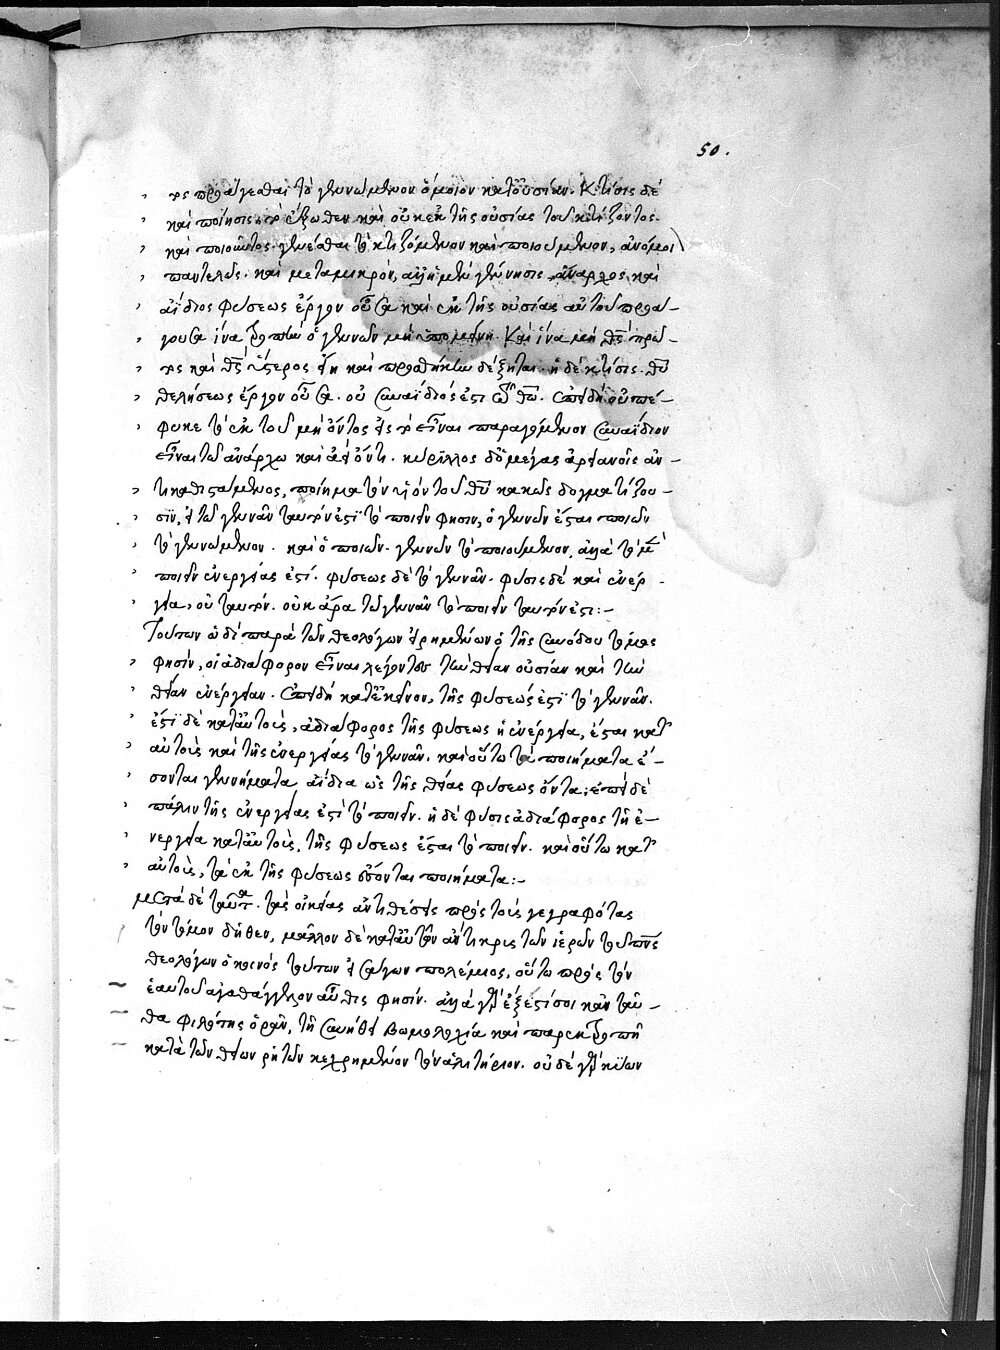 50.
τος προάγεσθαι τὸ γεννώμενον ὅμοιον κατ' οὐσίαν. Κτίσις δὲ
καὶ ποίησις, τὸ ἔξωθεν καὶ οὐκ ἐκ τῆς οὐσίας τοῦ κτίζοντος
καὶ ποιοῦντος γίνεσθαι τὸ κτιζόμενον καὶ ποιούμενον, ἀνόμοι
παντελῶς. καὶ μεταμικρὸν, ἀλλ' ἡ μὲν γέννησις ἄναρχος καὶ
ἀΐδιος φύσεως ἔργον οὖσα καὶ ἐκ τῆς οὐσίας αὐτοῦ προά-
γουσα ἵνα τροπὴν ὁ γεννῶν μὴ ὑπομείνῃ. Καὶ ἵνα μὴ θς πρῶ-
τος καὶ θς ὕστερος εἴη καὶ προσθήκην δέξηται. ἡ δὲ κτίσις θυ
θελήσεως ἔργον οὖσα. οὐ συναΐδιός ἐστι τῶ θω. ἐπειδὴ οὐ πέ-
φυκε τὸ ἐκ τοῦ μὴ ὄντος εἰς τὸ εἶναι παραγόμενον συναΐδιον
εἶναι τῶ ἀνάρχω καὶ ἀεὶ ὄντι. κύριλλος δ' ὁ μέγας ἀρειανοῖς ἀν-
τικαθιστάμενος, ποίημα τὸν υἱὸν τοῦ θυ κακῶς δογματίζου-
σιν, εἰ τῶ γεννᾶν ταυτόν ἐστι τὸ ποιεῖν φησιν, ὁ γεννῶν ἔσται ποιῶν
τὸ γεννώμενον. καὶ ὁ ποιῶν. γεννῶν τὸ ποιούμενον, ἀλλὰ τὸ μ
ποιεῖν ἐνεργείας ἐστί. φύσεως δὲ τὸ γεννᾶν. φύσις δὲ καὶ ἐνέρ-
γεια, οὐ ταυτόν. οὐκ ἄρα τῶ γεννᾶν τὸ ποιεῖν ταυτόν ἐστι:-
Τούτων ὡδὶ παρὰ τῶν θεολόγων εἰρημένων ὁ τῆς συνόδου τόμος
φησίν, οἱ ἀδιάφορον εἶναι λέγοντες τὴν θείαν οὐσίαν καὶ τὴν
θείαν ἐνέργειαν. ἐπειδὴ κατ' ἐκεῖνον, τῆς φύσεώς ἐστι τὸ γεννᾶν.
ἔστι δὲ κατ' αὐτοὺς, ἀδιάφορος τῆς φύσεως ἡ ἐνέργεια, ἔσται κατ'
αὐτοὺς καὶ τῆς ἐνεργείας τὸ γεννᾶν. καὶ οὕτω τὰ ποιήματα ἔ-
σονται γεννήματα, ἀΐδια ὡς τῆς θείας φύσεως ὄντα; ἐπεὶ δὲ
πάλιν τῆς ἐνεργείας ἐστὶ τὸ ποιεῖν. ἡ δὲ φύσις ἀδιάφορος τῆ ἐ-
νεργεία κατ' αὐτοὺς, τῆς φύσεως ἔσται τὸ ποιεῖν. καὶ οὕτω κατ'
αὐτοὺς, τὰ ἐκ τῆς φύσεως ἔσονται ποιήματα:-
μετὰ δὲ ταῦτα. τὰς οἰκείας ἀντιθέσεις πρὸς τοὺς γεγραφότας
τὸν τόμον δῆθεν, μᾶλλον δὲ κατ' αὐτῶν ἀντικρὺς τῶν ἱερῶν
θεολόγων ὁ κοινὸς τούτων πολέμιος, οὕτω πρὸς τὸν
ἑαυτοῦ ἀγαθάγγελον αὖθις φησίν. ἀλλὰ γὰρ ἔξεστί σοι κἀνταῦ-
θα φιλότης ὁρᾶν, τῆ συνήθει βωμολοχία καὶ παρεκτροπῆ
κατὰ τῶν θείων ῥητῶν κεχρημένον τὸν ἀλιτήριον. οὐδὲ γὰρ